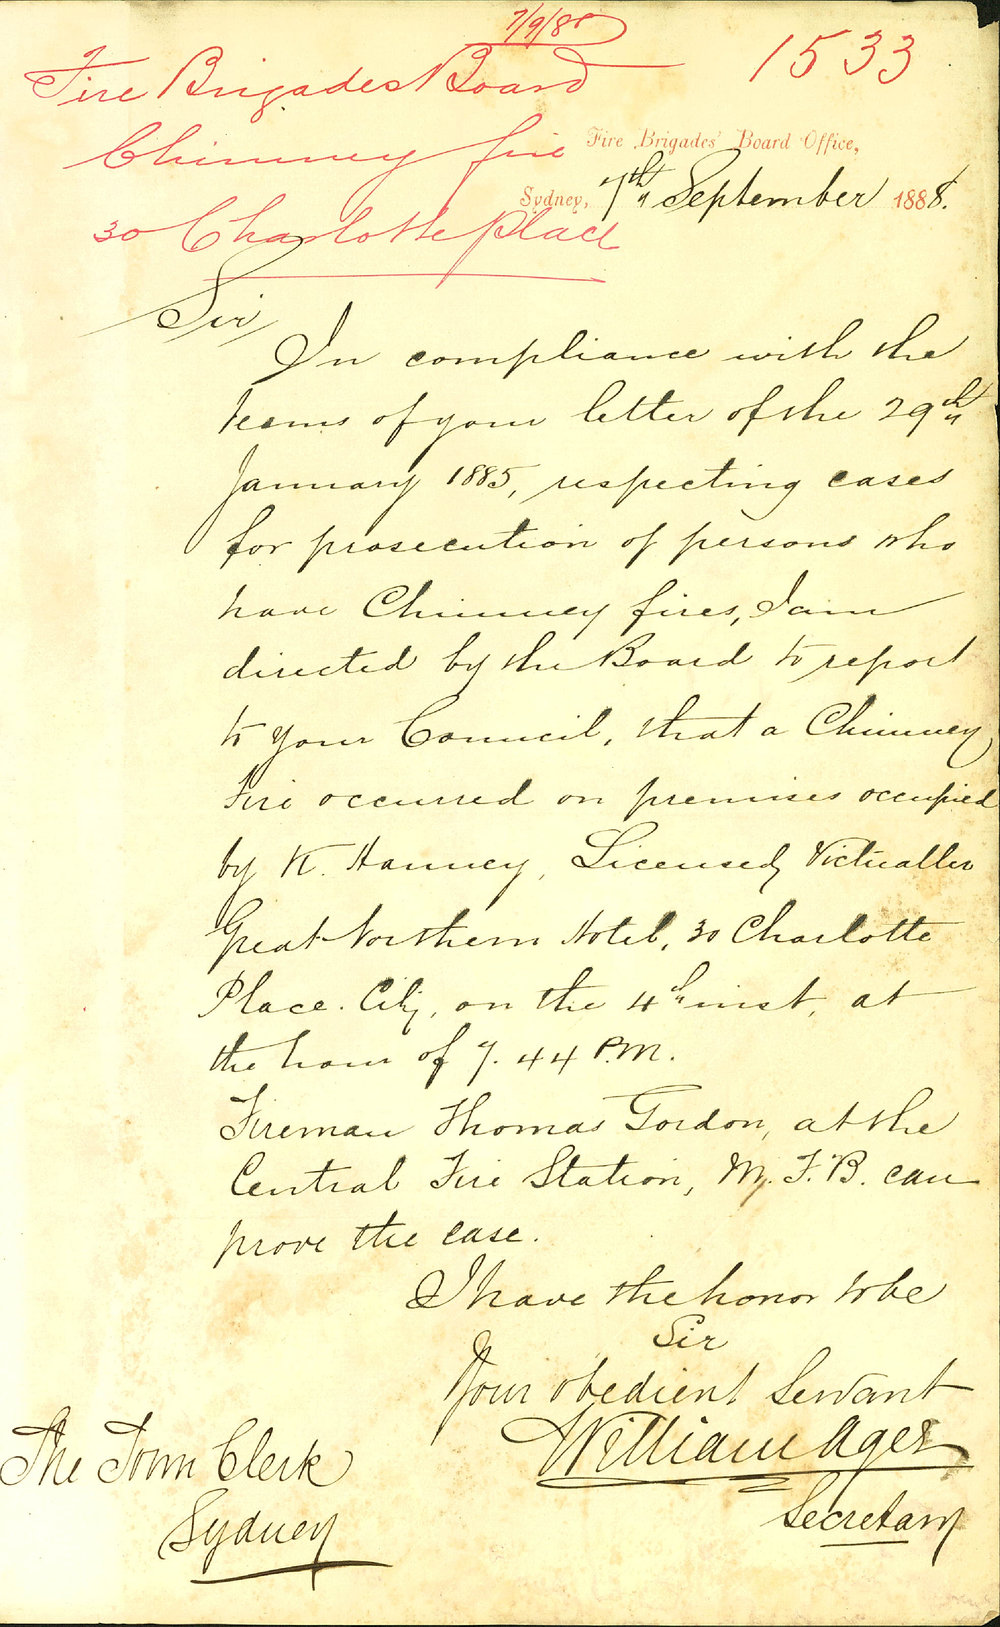 7/9/88
1533
Fire Brigades Board
Chimney fire
30 Charlotte Place
Fire Brigades' Board Office,
Sydney, 7th September 1888.
Sir,
In compliance with the
terms of your letter of the 29th
January 1885, respecting cases
for prosecution of persons who
have Chimney fires, I am
directed by the Board to report
to your Council, that a Chimney
Fire occurred on premises occupied
by K. Hanney, Licensed Victualler
Great Northern Hotel, 30 Charlotte
Place. City, on the 4th inst, at
the hour of 7.44 P.M.
Fireman Thomas Gordon, at the
Central Fire Station, M. F. B. can
prove the case.
I have the honor to be
Sir
Your obedient Servant
William Ager
Secretary
The Town Clerk
Sydney